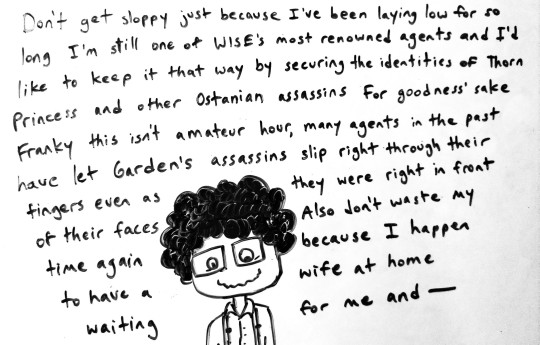 Don't get sloppy just because I've been laying low for so
long I'm still one of WISE's most renowned agents and I'd
like to keep it that way by securing the identities of Thorn
Princess and other Ostanian assassins for goodness' sake
Franky this isn't amateur hour, many agents in the past
have let Garden's assassins slip right through their
fingers even as they were right in front
of their faces Also don't waste my
time again because I happen
to have a wife at home
waiting for me and —